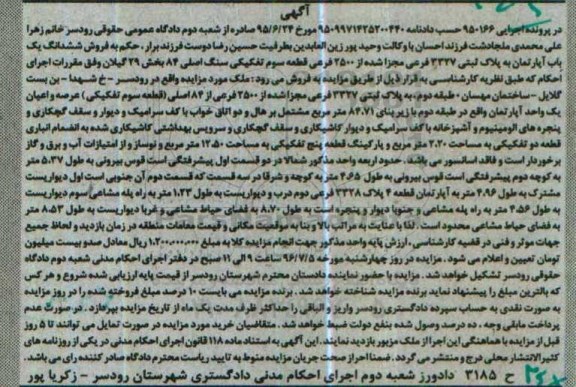 آگهی
در پرونده اجرایی ۹۵۰۱۶۶ حسب دادنامه ۹۵۰۹۹۷۱۴۳۵۲۰۰۴۴۰ مورخ ۹۵/۶/۲۴ صادره از شعبه دوم دادگاه عمومی حقوقی رودسر خانم زهرا
علی محمدی ملجادشت فرزند احسان با وکالت وحید پور زین العابدین بطرفیت حسین رضا دوست فرزند برار، حکم به فروش ششدانگ یک
باب آپارتمان به پلاک ثبتی ۳۳۲۷ فرعی مجزا شده از ۲۵۰۰ فرعی قطعه سوم تفکیکی سنگ اصلی ۸۴ بخش ۲۹ گیلان وفق مقررات اجرای
احکام که طبق نظریه کارشناسی به قرار ذیل از طریق مزایده به فروش می رود: ملک مورد مزایده واقع در رودسر - خ شهدا - بن بست
گلایل - ساختمان مهسان ۰ طبقه دوم، به پلاک ثبتی ۳۳۲۷ فرعی مجزا شده از ۲۵۰۰ فرعی از ۸۴ اصلی (قطعه سوم تفکیکی) عرصه و اعیان
یک واحد آپارتمان واقع در طبقه دوم با زیر بنای ۸۴.۷۱ متر مربع مشتمل بر هال و دو اتاق خواب با کف سرامیک و دیوار و سقف گچکاری و
پنجره های الومینیوم و آشپزخانه با کف سرامیک و دیوار کاشیکاری و سقف گچکاری و سرویس بهداشتی کاشیکاری شده به انضمام انباری
قطعه دو تفکیکی به مساحت ۲.۲۰ متر مربع و پارکینگ قطعه پنج تفکیکی به مساحت ۱۲.۵۰ متر مربع و نوساز و از امتیازات آب و برق و گاز
برخوردار است و فاقد آسانسور می باشد. حدود اربعه واحد مذکور شمالا در دو قسمت اول پیشرفتگی است قوس بیرونی به طول ۵.۳۷ متر
به کوچه دوم پیشرفتگی است قوس بیرونی به طول ۴.۶۵ متر به کوچه و شرقا در سه قسمت که قسمت دوم آن جنوبی است اول دیواریست
مشترک به طول ۴.۹۶ متر به آپارتمان قطعه ۴ پلاک ۳۳۲۸ فرعی دوم درب و دیواریست به طول ۱.۲۳ متر به راه پله مشاعی سوم دیواریست
به طول ۴.۵۶ متر به راه پله مشاعی و جنوبا دیوار و پنجره است به طول ۸.۷۰ به فضای حیاط مشاعی و غربا دیواریست به طول ۸.۵۳ متر
به فضای حیاط مشاعی محدود است. لذا با عنایت به مراتب بالا و بنا به موقعیت مکانی و قیمت معاملات منطقه در زمان بازدید و لحاظ جمیع
جهات موثر و فنی در قضیه کارشناسی، ارزش پایه واحد مذکور جهت انجام مزایده کلا به مبلغ ۱.۲۰۰.۰۰۰.۰۰۰ ریال معادل صدو بیست میلیون
تومان تعیین و اعلام می شود. مزایده در روز چهارشنبه مورخه ۹۶/۷/۵ ساعت ۹ الی ۱۱ صبح در دفتر اجرای احکام مدنی شعبه دوم دادگاه
حقوقی رودسر تشکیل خواهد شد. مزایده با حضور نماینده دادستان محترم شهرستان رودسر از قیمت پایه ارزیابی شده شروع و هر کس
که بالترین مبلغ را پیشنهاد نماید برنده مزایده شناخته خواهد شد. برنده مزایده می بایست ۱۰ درصد مبلغ فروخته شده را در روز مزایده
به صورت نقدی به حساب سپرده دادگستری رودسر واریز و الباقی را حداکثر ظرف مدت یک ماه از تاریخ مزایده بپردازد. در صورت عدم
پرداخت مابقی وجه، ده درصد وصول شده بنفع دولت ضبط خواهد شد. متقاضیان خرید مورد مزایده در صورت تمایل می توانند تا ۵ روز
قبل از مزایده با هماهنگی این اجرا از ملک مزبور بازدید نمایند. این آگهی به استناد ماده ۱۱۸ قانون اجرای احکام مدنی در یکی از روزنامه های
کثیرالانتشار محلی درج و منتشر می گردد. ضمنا احراز صحت جریان مزایده منوط به تایید ریاست محترم دادگاه صادر کننده رای می باشد.
ح ۳۱۸۵ دادورز شعبه دوم اجرای احکام مدنی دادگستری شهرستان رودسر - زکریا پور